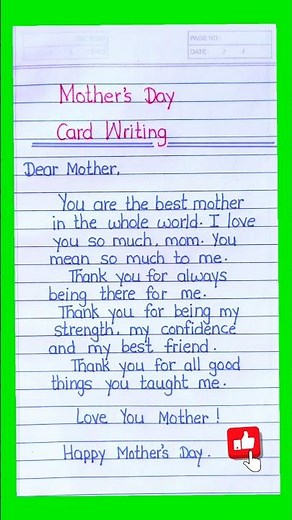 PAGE NO:
DATE
Mother's Day
Card Writing
Dear Mother,
You are the best mother
in the whole world. I love
you so much, mom. You
mean so much to me.
Thank you for always
being there for me.
Thank you for being my
strength, my confidence
and my best friend.
Thank you for all good
things you taught me.
Love You Mother!
Happy Mother's Day.